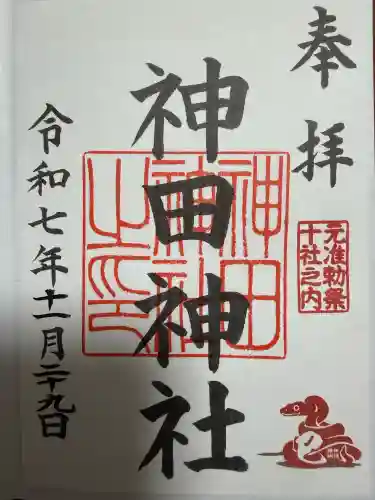 奉拝
元准勅祭
十社之内
神田神社
神田
神社
之印
令和七年十一月二十九日